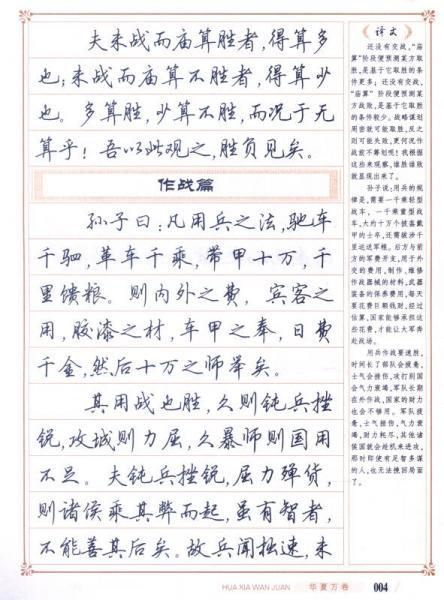 夫未战而庙算胜者，得算多
也；未战而庙算不胜者，得算少
也。多算胜，少算不胜，而况于无
算乎！吾以此观之，胜负见矣。
作战篇
孙子曰：凡用兵之法，驰车
千驷，革车千乘，带甲十万，千
里馈粮。则内外之费，宾客之
用，胶漆之材，车甲之奉，日费
千金，然后十万之师举矣。
其用战也胜，久则钝兵挫
锐，攻城则力屈，久暴师则国用
不足。夫钝兵挫锐，屈力殚货，
则诸侯乘其弊而起，虽有智者，
不能善其后矣。故兵闻拙速，未
译文
还没有交战，“庙
算”阶段便预测某方取
胜，是基于它取胜的条
件更多；还没有交战，
“庙算”阶段便预测某
方战败，是基于它取胜
的条件较少。战略谋划
周密就可能取胜，反之
则可能失败，更何况作
战前不筹划呢！我根据
这些来观察，谁胜谁败
就显现出来了。
孙子说：用兵的规
律是，需要一千乘轻型
战车，一千乘重型战
车，大约十万个披盔戴
甲的士卒，还需跋涉千
里运送军粮。后方与前
方的军费开支，用于外
交的费用，制作、维修
作战器械的材料，武器
装备的保养费用，每天
要花费巨额钱财，经过
估算，国家能够承担这
些花费，才能让大军奔
赴战场。
用兵作战要速胜，
时间长了部队会疲惫，
士气会挫伤，攻打别国
会气力衰竭，军队长期
在外作战，国家的财力
也会不够用。军队疲
惫，士气挫伤，气力衰
竭，财力耗尽，其他诸
侯国就会趁机来进攻，
那时即使有足智多谋
的人，也无法挽回局面
了。
HUA XIA WAN JUAN 华夏万卷 004